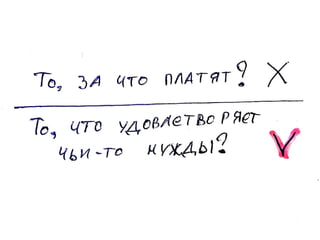 То, за что платят? X
То, что удовлетворяет
чьи-то нужды? V